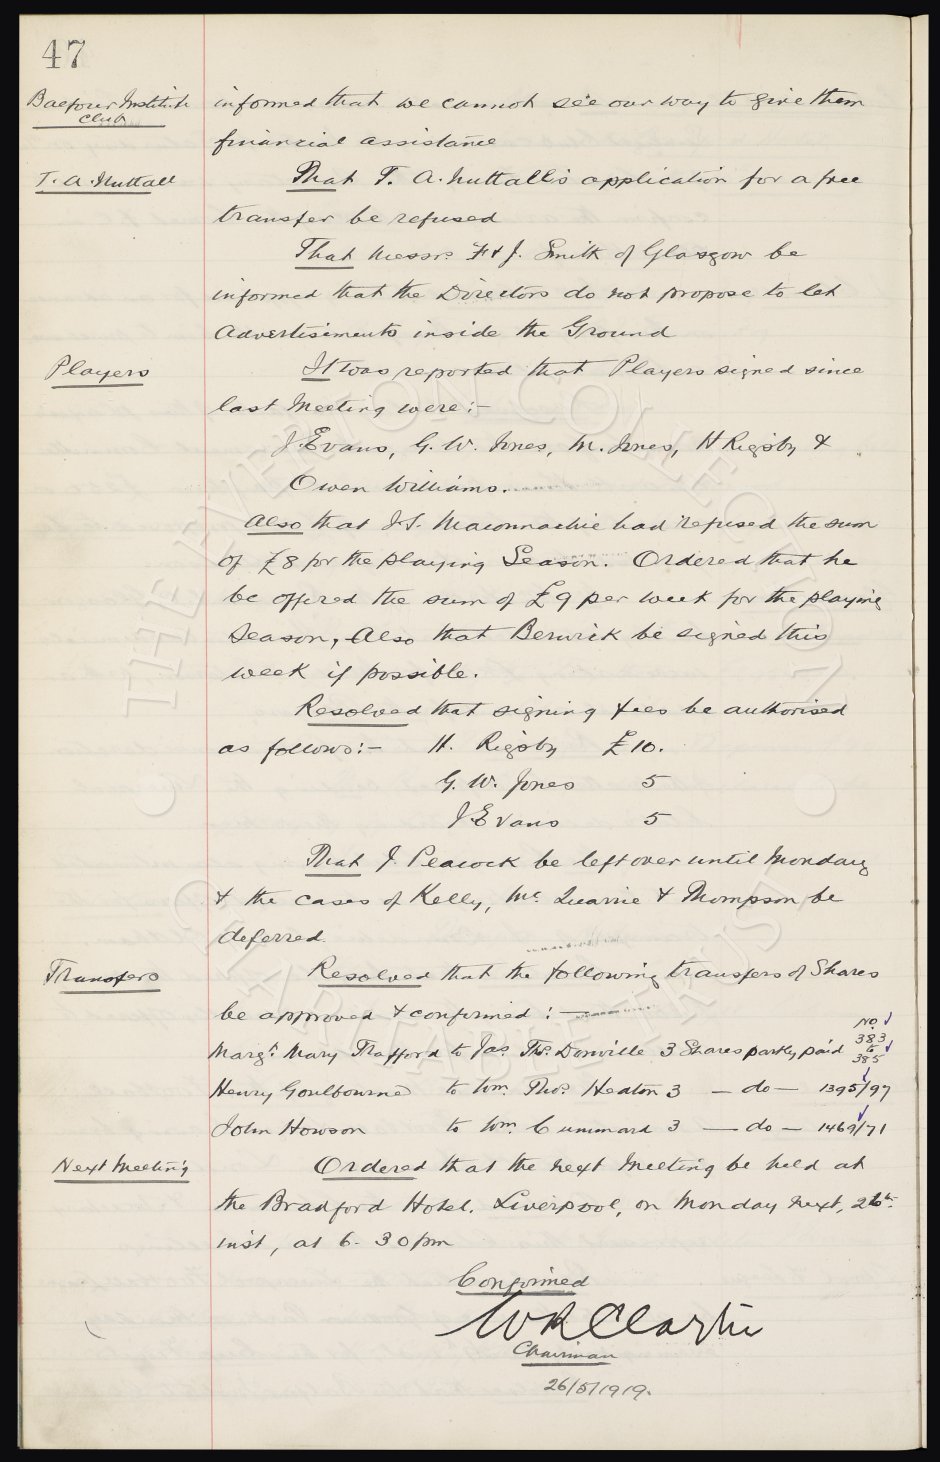 47
Balfour Institute informed that we cannot see our way to give them
Club
financial assistance
T. A. Nuttall That T. A. Nuttall's application for a free
transfer be refused
That Messrs F & J. Smith of Glasgow be
informed that the Directors do not propose to let
Advertisements inside the Ground
Players It was reported that Players signed since
last Meeting were:-
J Evans, G. W. Jones, M. Jones, H Rigsby &
Owen Williams.
Also that J. S. Maconnachie had refused the sum
of £8 for the playing Season. Ordered that he
be offered the sum of £9 per week for the playing
Season, Also that Berwick be signed this
week if possible.
Resolved that signing fees be authorised
as follows:- H. Rigsby £10.
G. W. Jones 5
J Evans 5
That J. Peacock be left over until Monday
& the cases of Kelly, Mc Quarrie & Thompson be
deferred.
Transfers Resolved that the following transfers of Shares
be approved & confirmed:-
No.
Margt. Mary Trafford to Jas. Ths. Domville 3 Shares partly paid 383 to 385
Henry Goulbourne to Wm. Thos. Heaton 3 - do - 1395/97
John Howson to Wm. Cummard 3 - do - 1469/71
Next Meeting Ordered that the next Meeting be held at
the Bradford Hotel. Liverpool, on Monday next, 26th.
inst, at 6-30pm
Confirmed
W R Clayton
Chairman
26/5/1919.
THE EVERTON COLLECTION
CHARITABLE TRUST